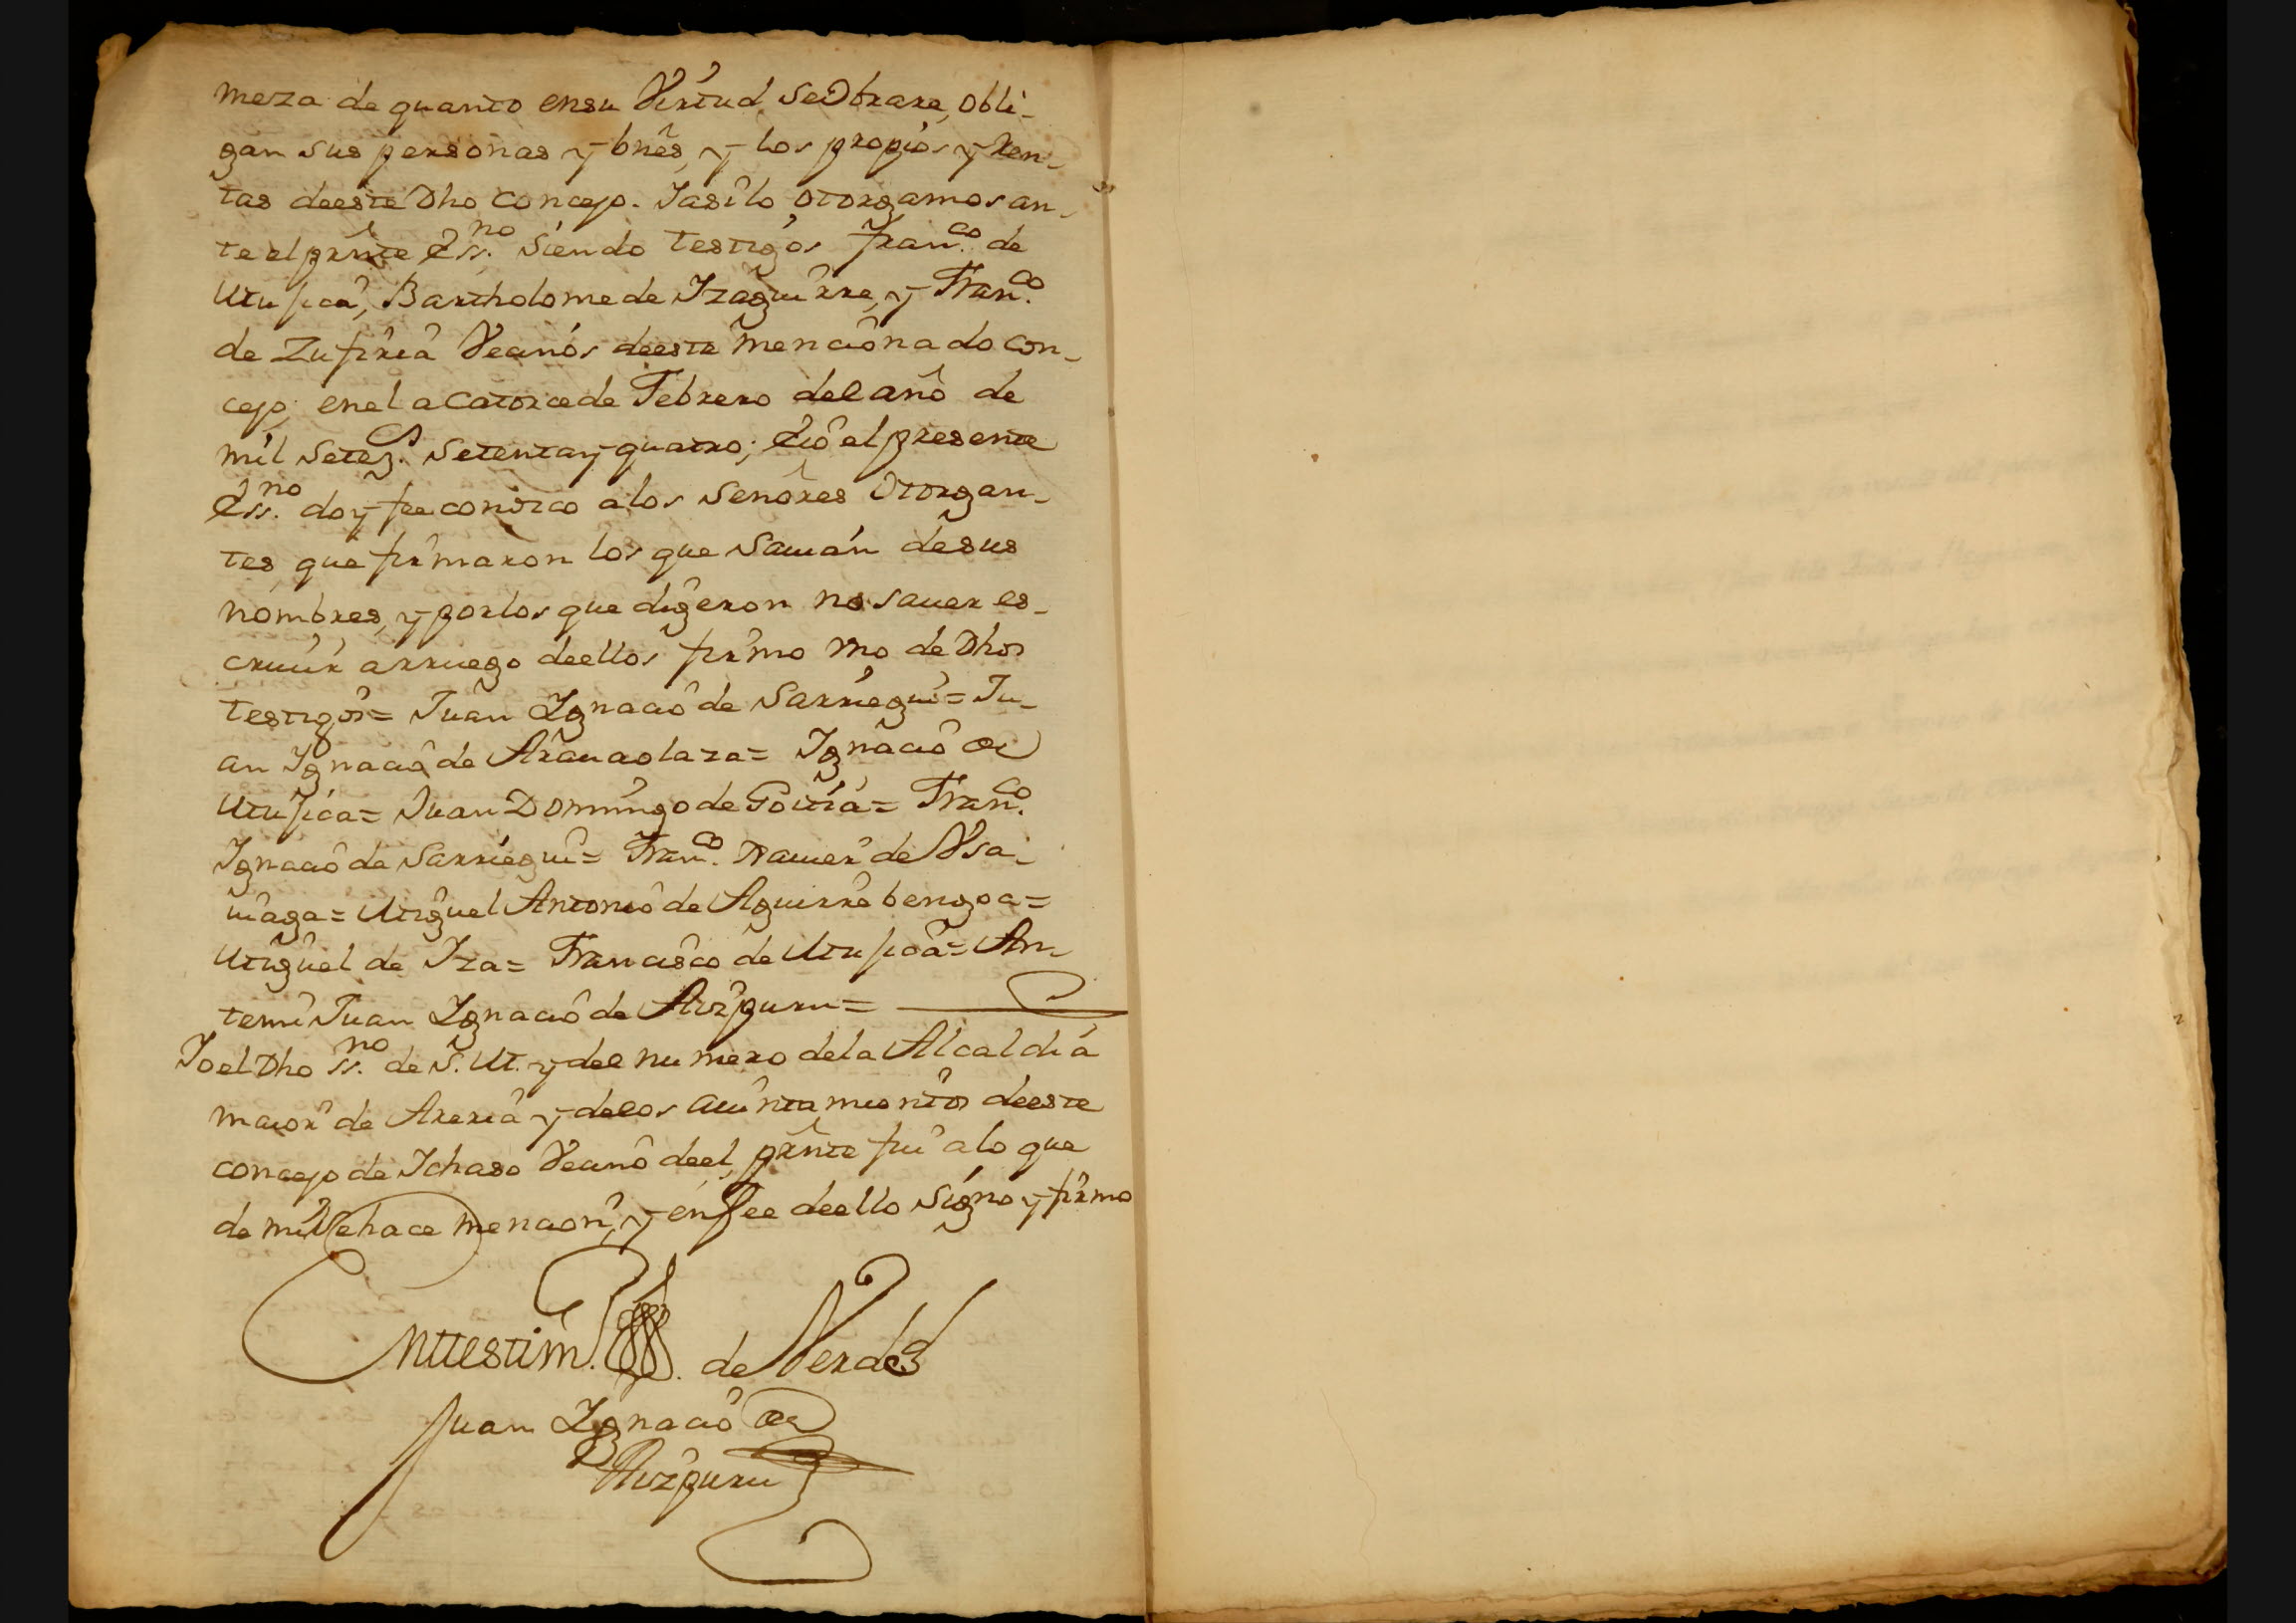 meza de quanto ensu Virtud se Obrare, obli-
gan sus personas y bnês, y los propios y Ren-
tas deeste Dho Concejo. Iasilo otorgamos an-
te el prŝnte Ess.no siendo testigos fran.co de
Muxica, Bartholome de Izaguirre, y Fran.co
de Zufiria Vecinos deeste mencionado con-
cejo, enel a Catorce de Febrero del año de
mil setez.s setenta y quatro; Eio el presente
Ess.no doy fee conozco a los señores Otorgan-
tes, que firmaron los que Savian desus
nombres, y por los que digeron no saver es-
crivir a rruego deellos firmo vno de Dhos
testigos = Juan Ignacio de Sarriegui = Ju-
an Ignacio de Aranaolaza = Ignacio de
Muxica = Juan Domingo de Goitia = Fran.co
Ignacio de Sarriegui = Fran.co Xavier de Vsa-
viaga = Miguel Antonio de Aguirre bengoa =
Miguel de Iza = Francisco de Muxica = An-
temi Juan Ignacio de Aizpuru =
Io el Dho ss.no de S. M. y del numero dela Alcaldia
maior de Areria y delos aiuntamientos deeste
concejo de Ichaso Vecino deel, prŝnte fui a lo que
de mi se hace mencion, y en fee deello signo y firmo
Enttestim.o de Verdad
Juan Ignacio de
Aizpuru